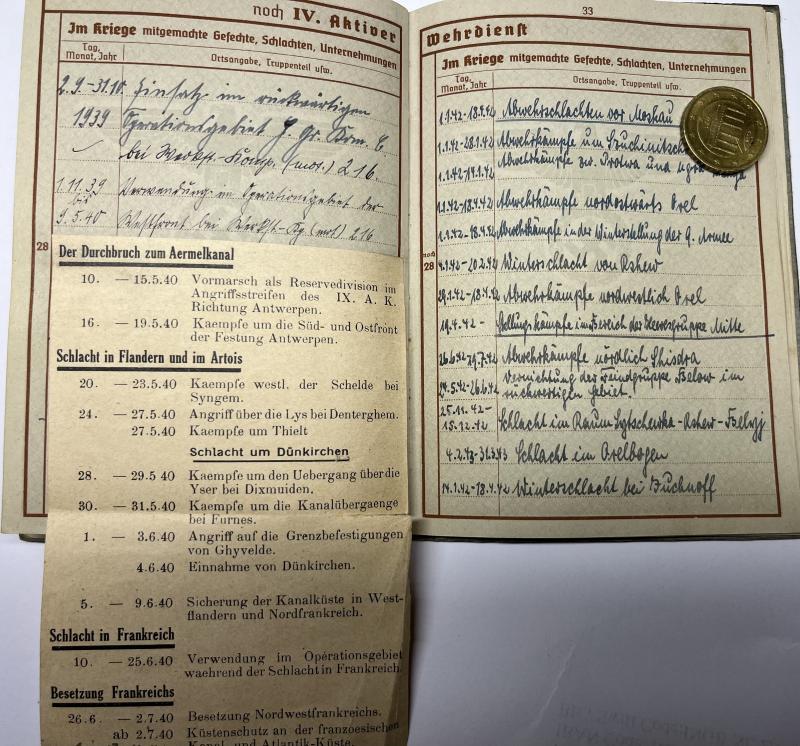 noch IV. Aktiver
Im Kriege mitgemachte Gefechte, Schlachten, Unternehmungen
Tag, Monat, Jahr
Ortsangabe, Truppenteil usw.
2.9.-31.10. Einsatz im rückwärtigen
1939 Operationsgebiet H. Gr. Kdo. C
bei Werkst.-Komp. (mot.) 216.
1.11.39 Verwendung im Operationsgebiet der
bis
9.5.40 Westfront bei Werkst.-Kp (mot) 216
28
Der Durchbruch zum Aermelkanal
10. — 15.5.40 Vormarsch als Reservedivision im
Angriffsstreifen des IX. A. K.
Richtung Antwerpen.
16. — 19.5.40 Kaempfe um die Süd- und Ostfront
der Festung Antwerpen.
Schlacht in Flandern und im Artois
20. — 23.5.40 Kaempfe westl. der Schelde bei
Syngem.
24. — 27.5.40 Angriff über die Lys bei Denterghem.
27.5.40 Kaempfe um Thielt
Schlacht um Dünkirchen
28. — 29.5 40 Kaempfe um den Uebergang über die
Yser bei Dixmuiden.
30. — 31.5.40 Kaempfe um die Kanalübergaenge
bei Furnes.
1. — 3.6.40 Angriff auf die Grenzbefestigungen
von Ghyvelde.
4.6.40 Einnahme von Dünkirchen.
5. — 9.6.40 Sicherung der Kanalküste in West-
flandern und Nordfrankreich.
Schlacht in Frankreich
10. — 25.6.40 Verwendung im Operationsgebiet
waehrend der Schlacht in Frankreich.
Besetzung Frankreichs
26.6. — 2.7.40 Besetzung Nordwestfrankreichs.
ab 2.7.40 Küstenschutz an der franzoesischen
Kanal- und Atlantik-Küste.
33
Wehrdienst
Im Kriege mitgemachte Gefechte, Schlachten, Unternehmungen
Tag, Monat, Jahr
Ortsangabe, Truppenteil usw.
1.1.42-18.4.42 Abwehrschlachten vor Moskau
1.1.42-28.1.42 Abwehrkämpfe um Suchinitsch
1.1.42-14.1.42 Abwehrkämpfe zw. Protwa und
1.1.42-18.4.42 Abwehrkämpfe nordostwärts Orel
1.1.42-18.4.42 Abwehrkämpfe in der Winterstellung der 9. Armee
noch
28
4.1.42-20.2.42 Winterschlacht von Rshew
29.1.42-18.4.42 Abwehrkämpfe nordwestlich Orel
19.4.42- Stellungskämpfe im Bereich der Heeresgruppe Mitte
26.6.42-29.7.42 Abwehrkämpfe nördlich Shisdra
24.5.42-26.6.42 Vernichtung der Feindgruppe Below im
rückwertigen Gebiet.
25.11.42-
15.12.42 Schlacht im Raum Sytschewka-Rshew-Bjelyj
4.2.43-31.3.43 Schlacht im Orelbogen
14.1.42-18.4.42 Winterschlacht bei Juchnoff